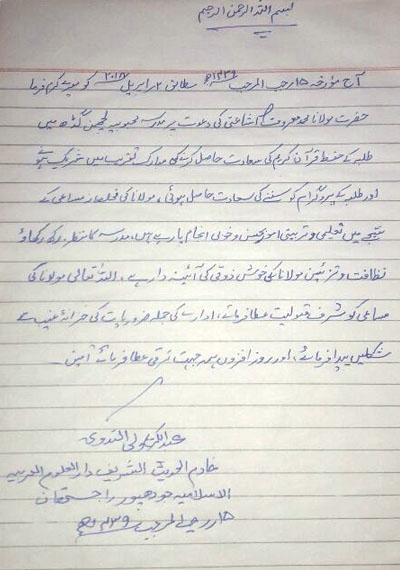 بسم اللہ الرحمن الرحیم
آج مؤرخہ ۱۵ رجب المرجب ۱۴۳۹ھ مطابق ۲ اپریل ۲۰۱۸ کو میرے کرم فرما
حضرت مولانا محمد معروف اشاعتی کی دعوت پر مدرسہ محبوبیہ لچھمن گڈھ میں
طلبہ کے حفظ قرآن کریم کی سعادت حاصل کرنے کی مبارک تقریب میں شریک ہوئے
اور طلبہ کے پروگرام کو سننے کی سعادت حاصل ہوئی، مولانا کی مخلصانہ مساعی کے
نتیجے میں تعلیمی و تربیتی امور بحسن و خوبی انجام پا رہے ہیں، مدرسہ کا نظم رکھ رکھاؤ
نظافت و تزئین مولانا کی خوش ذوقی کی آئینہ دار ہے، اللہ تعالی مولانا کی
مساعی کو شرف قبولیت عطا فرمائے، ادارے کی جملہ ضروریات کی خزانۂ غیب سے
شکلیں پیدا فرمائے، اور روز افزوں ہمہ جہت ترقی عطا فرمائے آمین۔
الندوی
خادم الحدیث الشریف دار العلوم العربیہ
الاسلامیہ جودھپور راجستھان
۱۵ رجب المرجب ۱۴۳۹ھ